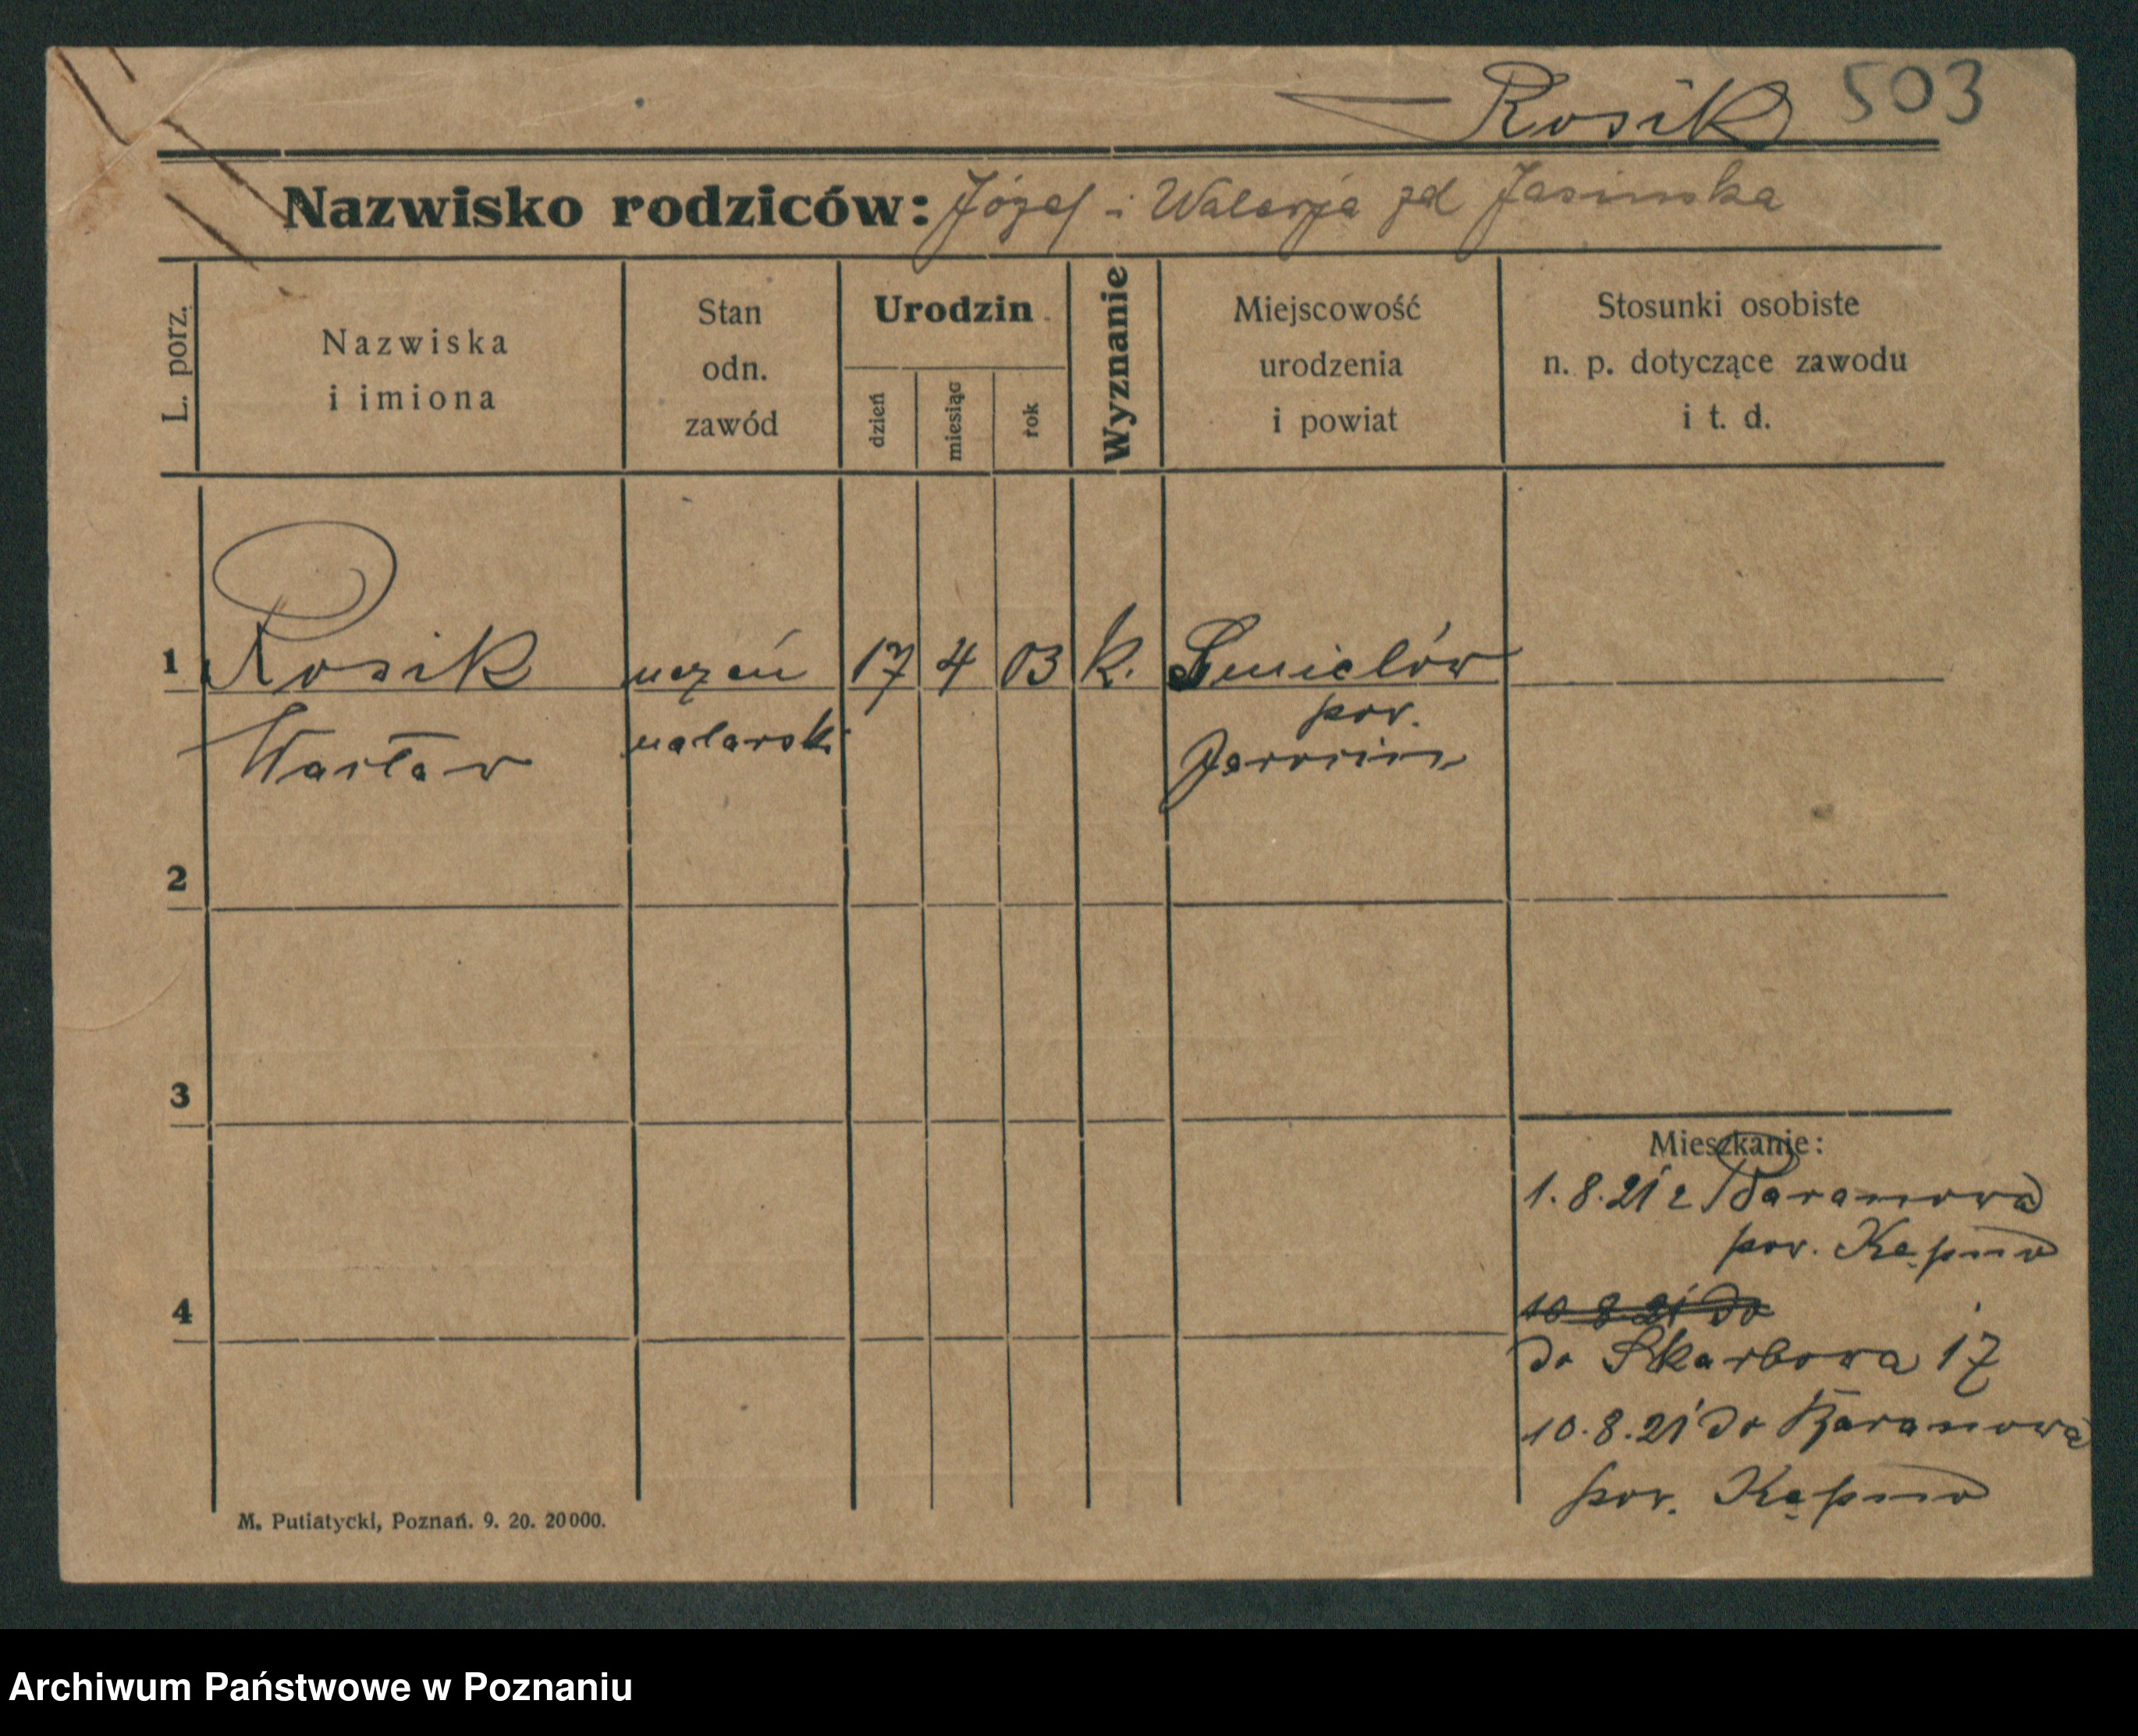 Rosik 503
Nazwisko rodziców: Józef i Walerja zd Jasińska
L. porz.
Nazwiska
i imiona
Stan
odn.
zawód
Urodzin
dzień
miesiąc
rok
Wyznanie
Miejscowość
urodzenia
i powiat
Stosunki osobiste
n. p. dotyczące zawodu
i t. d.
1 Rosik uczeń 17 4 03 k. Smielów
Wacław malarsk. pow.
Jarocin
2
3
Mieszkanie:
1.8.21 z Baranowa
pow. Kępno
4
10 8 21 do
do Skarbowa 17
10.8.21 do Baranowa
pow. Kępno
M. Putiatycki, Poznań. 9. 20. 20000.
Archiwum Państwowe w Poznaniu